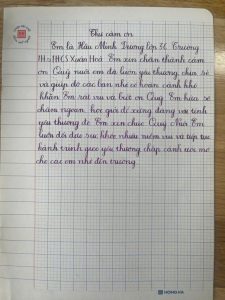 Thư cảm ơn
Em là Hầu Minh Trương lớp 3C Trường
TH & THCS Xuân Hoà Em xin chân thành cảm
ơn Quỹ nuôi em đã luôn yêu thương chia sẻ
và giúp đỡ các bạn nhỏ có hoàn cảnh khó
khăn Em rất vui và biết ơn Quỹ Em hứa sẽ
chăm ngoan, học giỏi để xứng đáng với tình
yêu thương đó Em xin chúc Quỹ Nuôi Em
luôn dồi dào sức khỏe nhiều niềm vui và tiếp tục
hành trình gieo yêu thương chắp cánh ước mơ
cho các em nhỏ đến trường
HONG HA